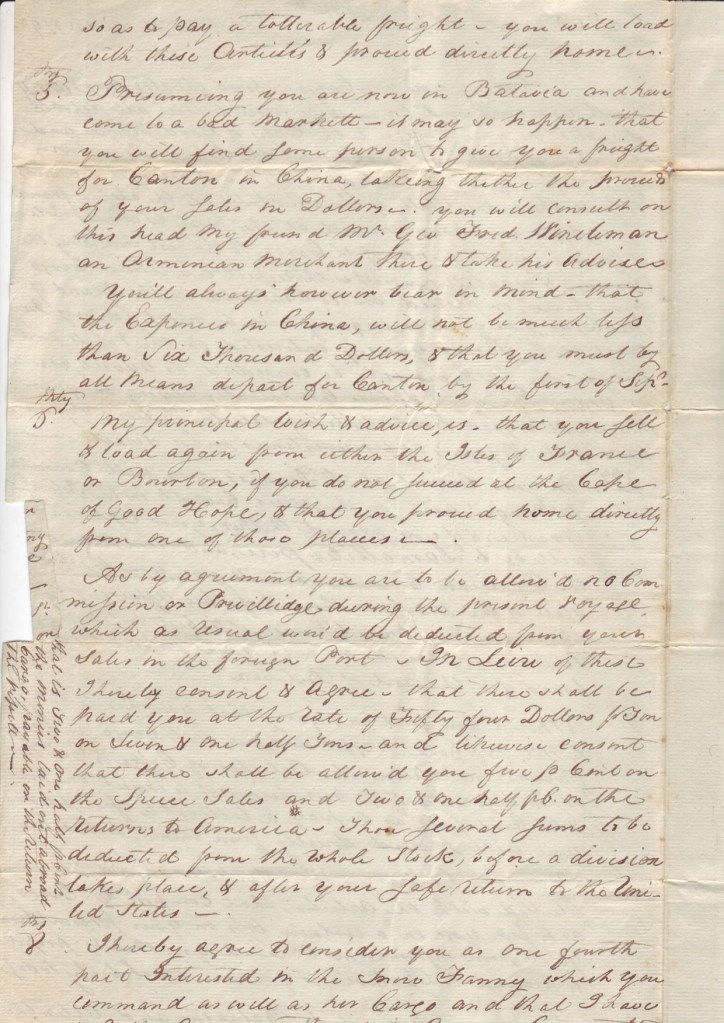 so as to pay a tollerable freight - you will load
with these Articles & proceed directly home -.
5. Presumeing you are now in Batavia and have
come to a bad Markett - it may so happen - that
you will find some person to give you a freight
for Canton in China, takeing thether the proceeds
of your Sales in Dollars -. you will consult on
this head My freind Mr. Geo Fred Wineliman
an Armonean Merchant there & take his Advise -
You'll always however bear in mind - that
the Expences in China, will not be much less
than Six Thousand Dollars, & that you must by
all Means depart for Canton by the first of Sepr.
6. My principal wish & advice, is - that you sell
& load again from either the Isles of France
or Bourbon, if you do not succeed at the Cape
of Good Hope, & that you proceed home directly
from one of those places -.
As by agreement you are to be allow'd no Com
mission or Privillidge during the present Voyage,
which as Usual wou'd be deducted from your
Sales in the foreign Port - In Leiu of these
I hereby consent & Agree - that there shall be
paid you at the rate of Fifty four Dollars p Ton
on Seven & one half Tons - and likewise consent
that there shall be allow'd you five p Cent on
the Specie Sales and Two & one half p C. on the
returns to America - These several sums to be
deducted from the whole Stock, before a division
takes place, & after your Safe return to the Uni-
ted States -.
I hereby agree to consider you as one fourth
part Interested in the Snow Fanny which you
command as well as her Cargo and that I have
that is Two & one half p Cent
on the Monies laid out abroad
Cargo, payable on the return